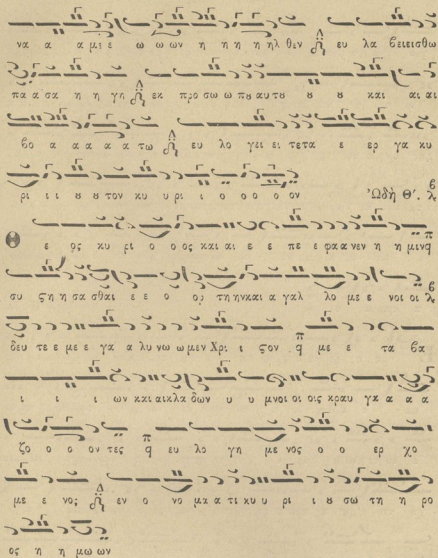 να α α με ε ω ω ων η η η η ηλ θεν ευ λα βειεισθω
πα α σα η η γη εκ προ σω ω που αυτου ου ου και αι αι
βο α α α α α τω ευ λο γει ει τετα ε ερ γα κυ
ρι ι ι ου ου τον κυ υ ρι ι ο ο ο ο ον Ὠδὴ Θʹ.
Θ ε ος κυ ρι ο ο ος και αι ε ε πε ε φα α νεν η η μιν
συ ςη η σα σθαι ε ε ο ο ορ τη ην και α γαλ λο με ε νοι οι
δευ τε ε με ε γα α λυ νω ω μεν Χρι ι ςον με ε τα βα
ι ι ι ων και αι κλα δων υ υ μνοι οι οις κραυ γα α α α
ζο ο ο ον τες ευ λο γη με νος ο ο ερ χο
με ε νος εν ο νο μα α τι κυ υ ρι ι ου σω τη η ρο
ος η η μω ων